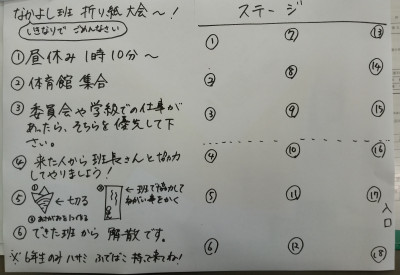 なかよし班 折り紙大会〜!
いきなりで ごめんなさい
① 昼休み 1時10分〜
② 体育館 集合
③ 委員会や学級での仕事が
あったら、そちらを優先して下
さい。
④ 来た人から班長さんと協力
してやりましょう!
⑤ ① ←切る ③ ←班で協力して
ねがい事をかく
②おりがみを
⑥ できた班から 解散です。
※ 6年生のみ ハサミ ふでばこ 持って来てね!
ステージ
① ⑦ ⑬
② ⑧ ⑭
③ ⑨ ⑮
④ ⑩ ⑯
⑤ ⑪ ⑰
入口
⑥ ⑫ ⑱